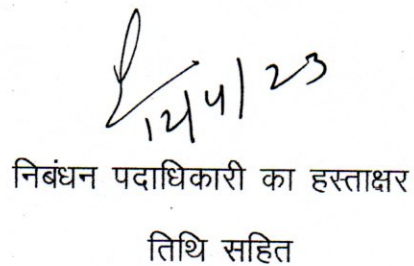 12/4/23
निबंधन पदाधिकारी का हस्ताक्षर
तिथि सहित